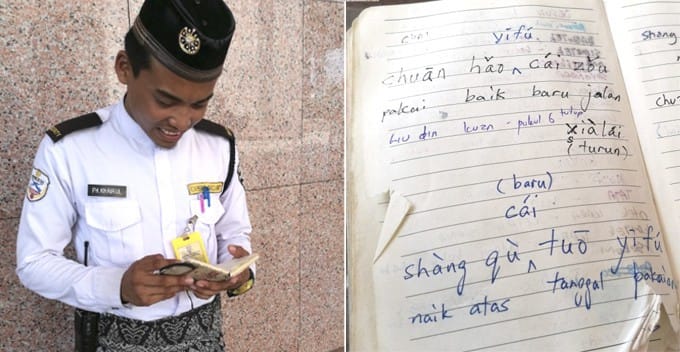 PK KHAIRUL
yīfú.
chuān hǎo ^ cái zǒu
pakai baik baru jalan
Liu din kuzn - pukul 6 tutup
xiàlái
(turun)
(baru)
cái
shàng qù ^ tuō yīfú
naik atas tanggal pakaian
shàng
chu